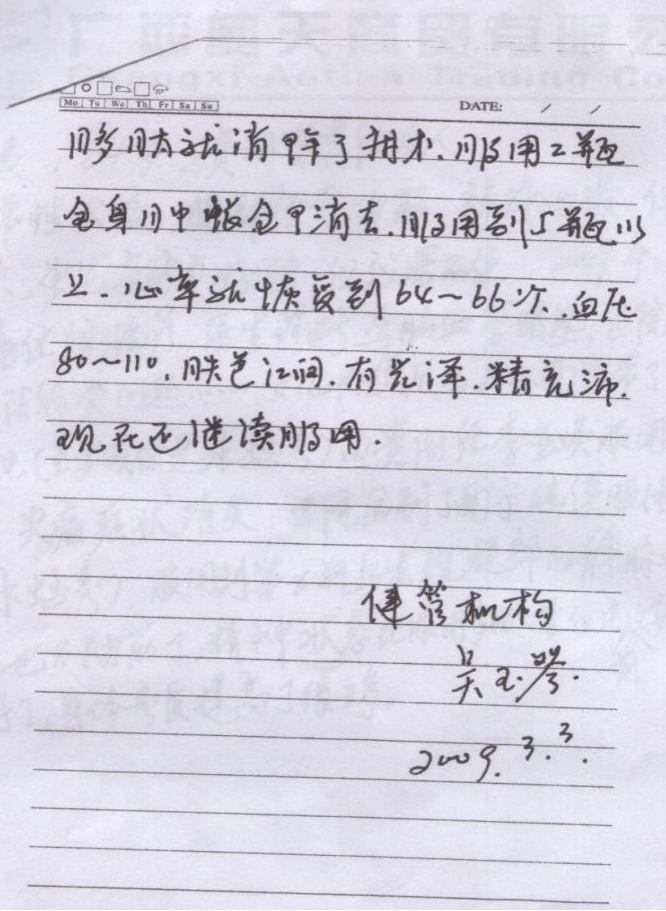 Mo Tu We Th Fr Sa Su
DATE: / /
就消除了拼木.服用2瓶
全身川中胀全甲消去.服用到5瓶以
上.心率就恢复到64～66次.血压
80～110.肤色江润.有光泽.精充沛.
现在还继续服用.
健管机构
吴玉琴.
2009.3.3.